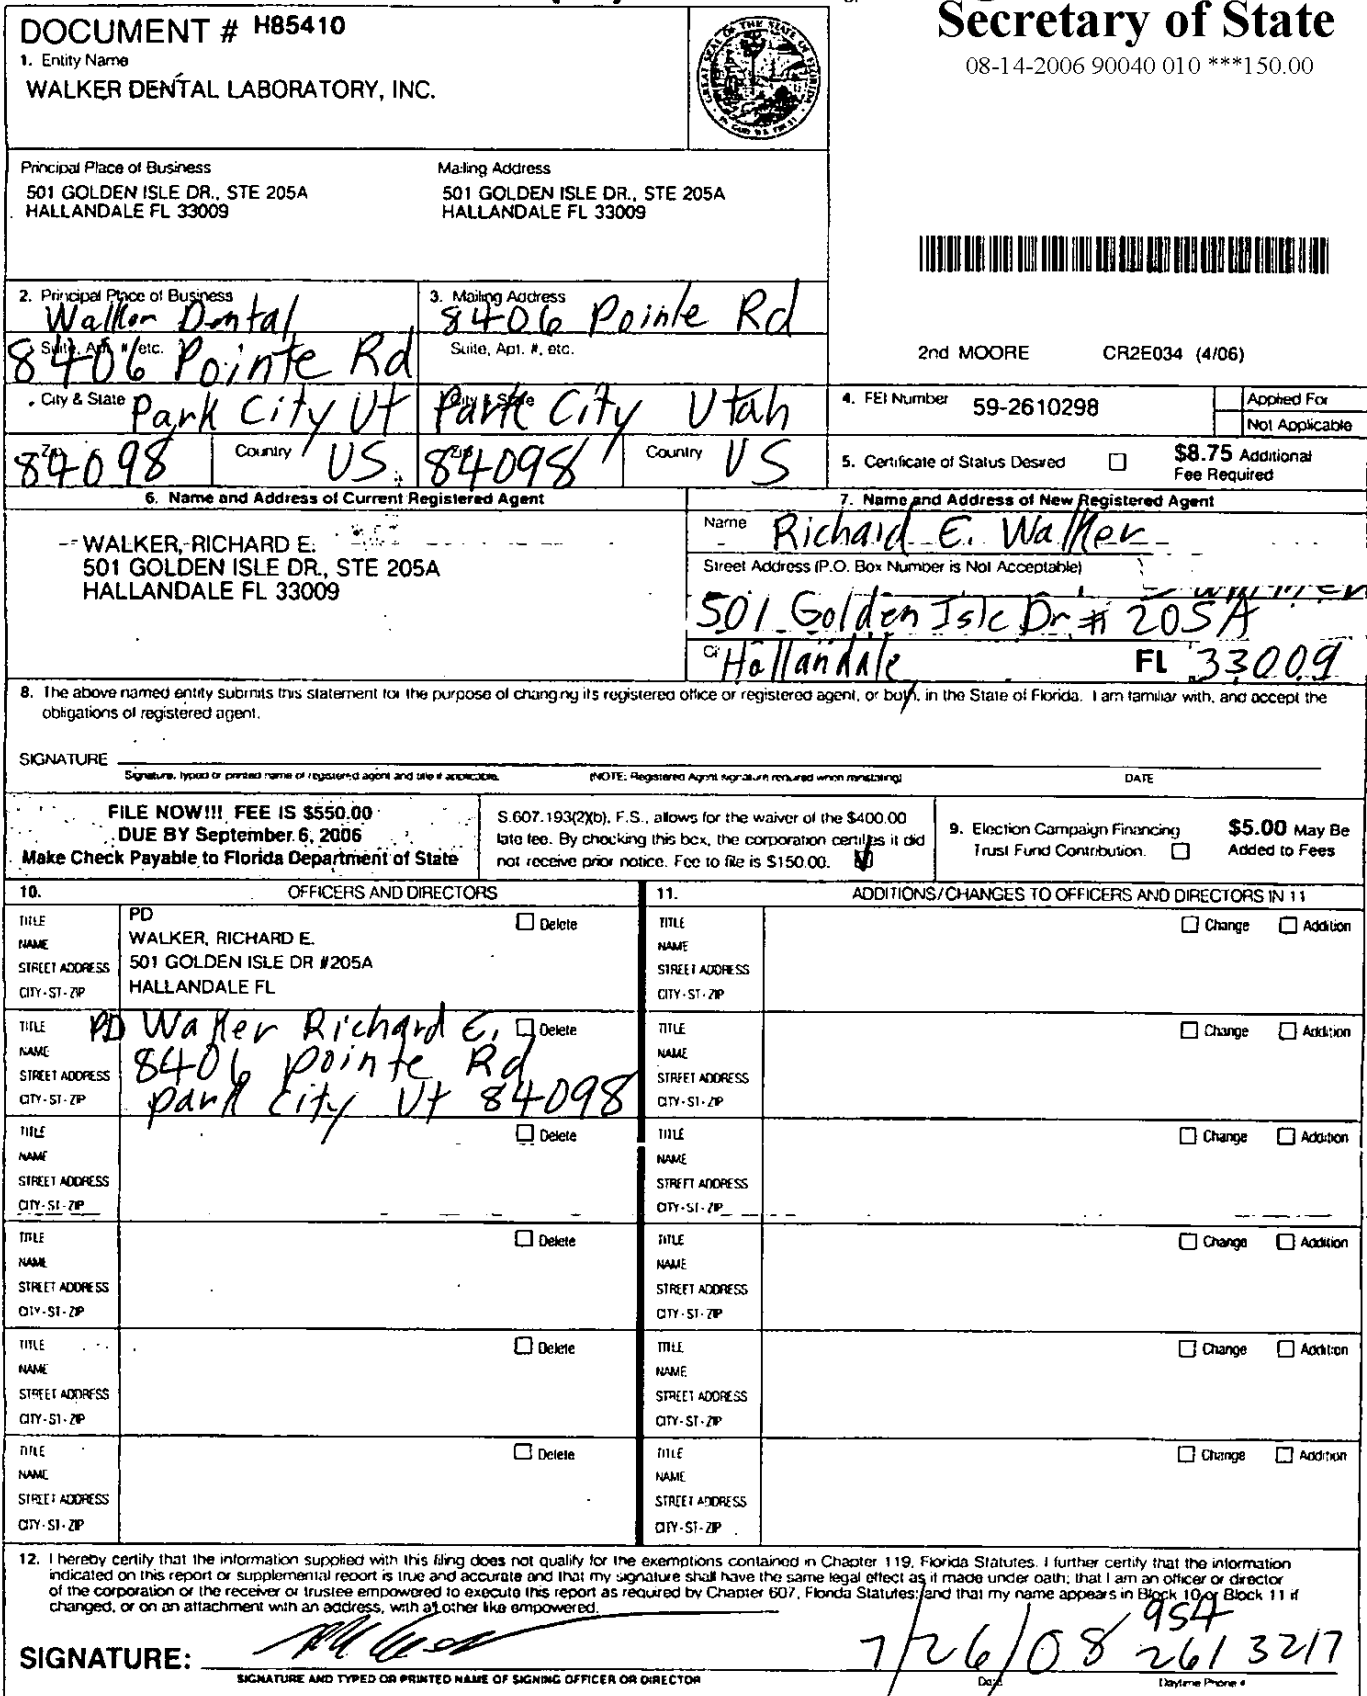 Secretary of State
08-14-2006 90040 010 ***150.00
DOCUMENT # H85410
1. Entity Name
WALKER DENTAL LABORATORY, INC.
Principal Place of Business
501 GOLDEN ISLE DR., STE 205A
HALLANDALE FL 33009
Mailing Address
501 GOLDEN ISLE DR., STE 205A
HALLANDALE FL 33009
2. Principal Place of Business
Walker Dental
3. Mailing Address
8406 Pointe Rd
Suite, Apt. #, etc.
8406 Pointe Rd
Suite, Apt. #, etc.
2nd MOORE CR2E034 (4/06)
City & State Park City Ut
City & State Park City Utah
4. FEI Number 59-2610298
Applied For
Not Applicable
Zip 84098 Country US
Zip 84098 Country US
5. Certificate of Status Desired
$8.75 Additional
Fee Required
6. Name and Address of Current Registered Agent
WALKER, RICHARD E.
501 GOLDEN ISLE DR., STE 205A
HALLANDALE FL 33009
7. Name and Address of New Registered Agent
Name Richard E. Walker
Street Address (P.O. Box Number is Not Acceptable)
501 Golden Isle Dr # 205A
Hallandale FL 33009
8. The above named entity submits this statement for the purpose of changing its registered office or registered agent, or both, in the State of Florida. I am familiar with, and accept the
obligations of registered agent.
SIGNATURE
Signature, typed or printed name of registered agent and title if applicable.
(NOTE: Registered Agent signature required when reinstating)
DATE
FILE NOW!!! FEE IS $550.00
DUE BY September 6, 2006
Make Check Payable to Florida Department of State
S.607.193(2)(b), F.S., allows for the waiver of the $400.00
late fee. By checking this box, the corporation certifies it did
not receive prior notice. Fee to file is $150.00.
9. Election Campaign Financing
Trust Fund Contribution.
$5.00 May Be
Added to Fees
10. OFFICERS AND DIRECTORS
11. ADDITIONS/CHANGES TO OFFICERS AND DIRECTORS IN 11
TITLE PD Delete
NAME WALKER, RICHARD E.
STREET ADDRESS 501 GOLDEN ISLE DR #205A
CITY-ST-ZIP HALLANDALE FL
TITLE Change Addition
NAME
STREET ADDRESS
CITY-ST-ZIP
TITLE PD Walker Richard E. Delete
NAME
STREET ADDRESS 8406 Pointe Rd
CITY-ST-ZIP Park City Ut 84098
TITLE Change Addition
NAME
STREET ADDRESS
CITY-ST-ZIP
TITLE Delete
NAME
STREET ADDRESS
CITY-ST-ZIP
TITLE Change Addition
NAME
STREET ADDRESS
CITY-ST-ZIP
TITLE Delete
NAME
STREET ADDRESS
CITY-ST-ZIP
TITLE Change Addition
NAME
STREET ADDRESS
CITY-ST-ZIP
TITLE Delete
NAME
STREET ADDRESS
CITY-ST-ZIP
TITLE Change Addition
NAME
STREET ADDRESS
CITY-ST-ZIP
TITLE Delete
NAME
STREET ADDRESS
CITY-ST-ZIP
TITLE Change Addition
NAME
STREET ADDRESS
CITY-ST-ZIP
12. I hereby certify that the information supplied with this filing does not qualify for the exemptions contained in Chapter 119, Florida Statutes. I further certify that the information
indicated on this report or supplemental report is true and accurate and that my signature shall have the same legal effect as if made under oath; that I am an officer or director
of the corporation or the receiver or trustee empowered to execute this report as required by Chapter 607, Florida Statutes; and that my name appears in Block 10 or Block 11 if
changed, or on an attachment with an address, with all other like empowered.
954
SIGNATURE: 7/26/08 261 3217
SIGNATURE AND TYPED OR PRINTED NAME OF SIGNING OFFICER OR DIRECTOR
Date
Daytime Phone #